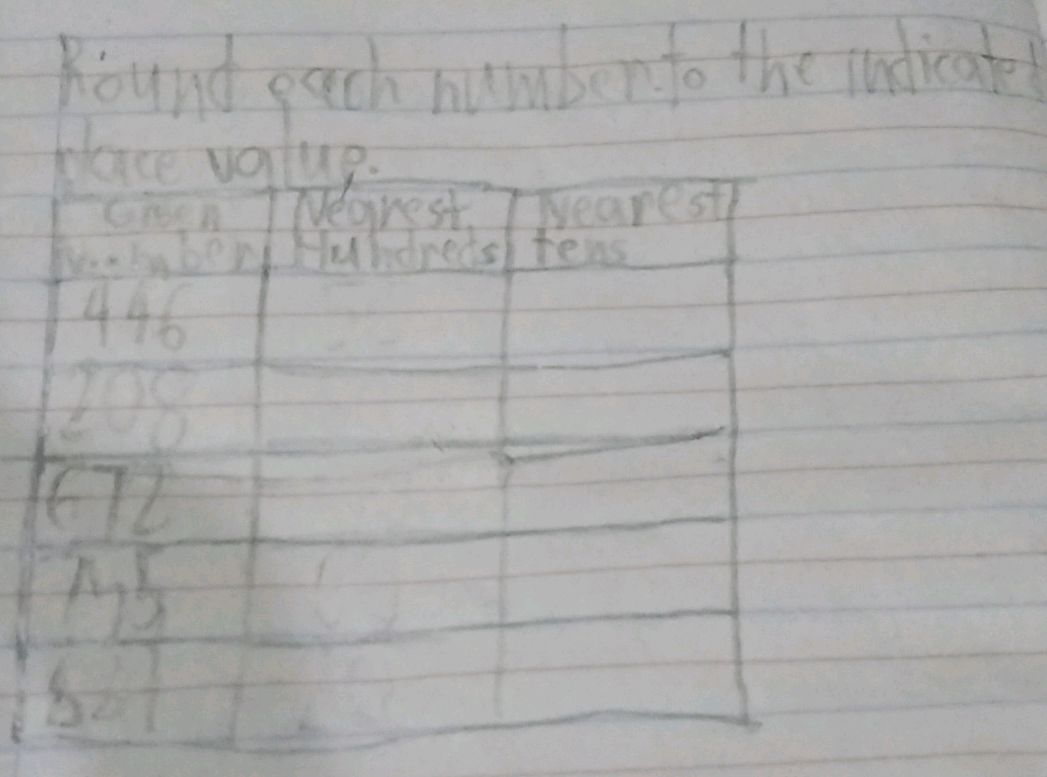 Round each number to the indicated
place value.
Given Number Nearest Hundreds Nearest tens
446
208
672